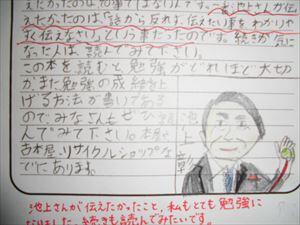 えたかったの4つ事ではないんです。一番池上さんが伝
えたかったのは「話から反れず、伝えたい事をわかりや
すく伝えなさい」という事だったのです。続きが気に
なった人は読んでみて下さい。
この本を読むと勉強がどれほど大切
かまた勉強の成績を上
げる方法が書いてある
ので、みなさんもぜひ読
んでみて下さい。本屋や
古本屋、リサイクルショップなど
でにあります。
池上彰
池上さんが伝えたかったこと、私もとても勉強に
なりました。続きも読んでみたいです。